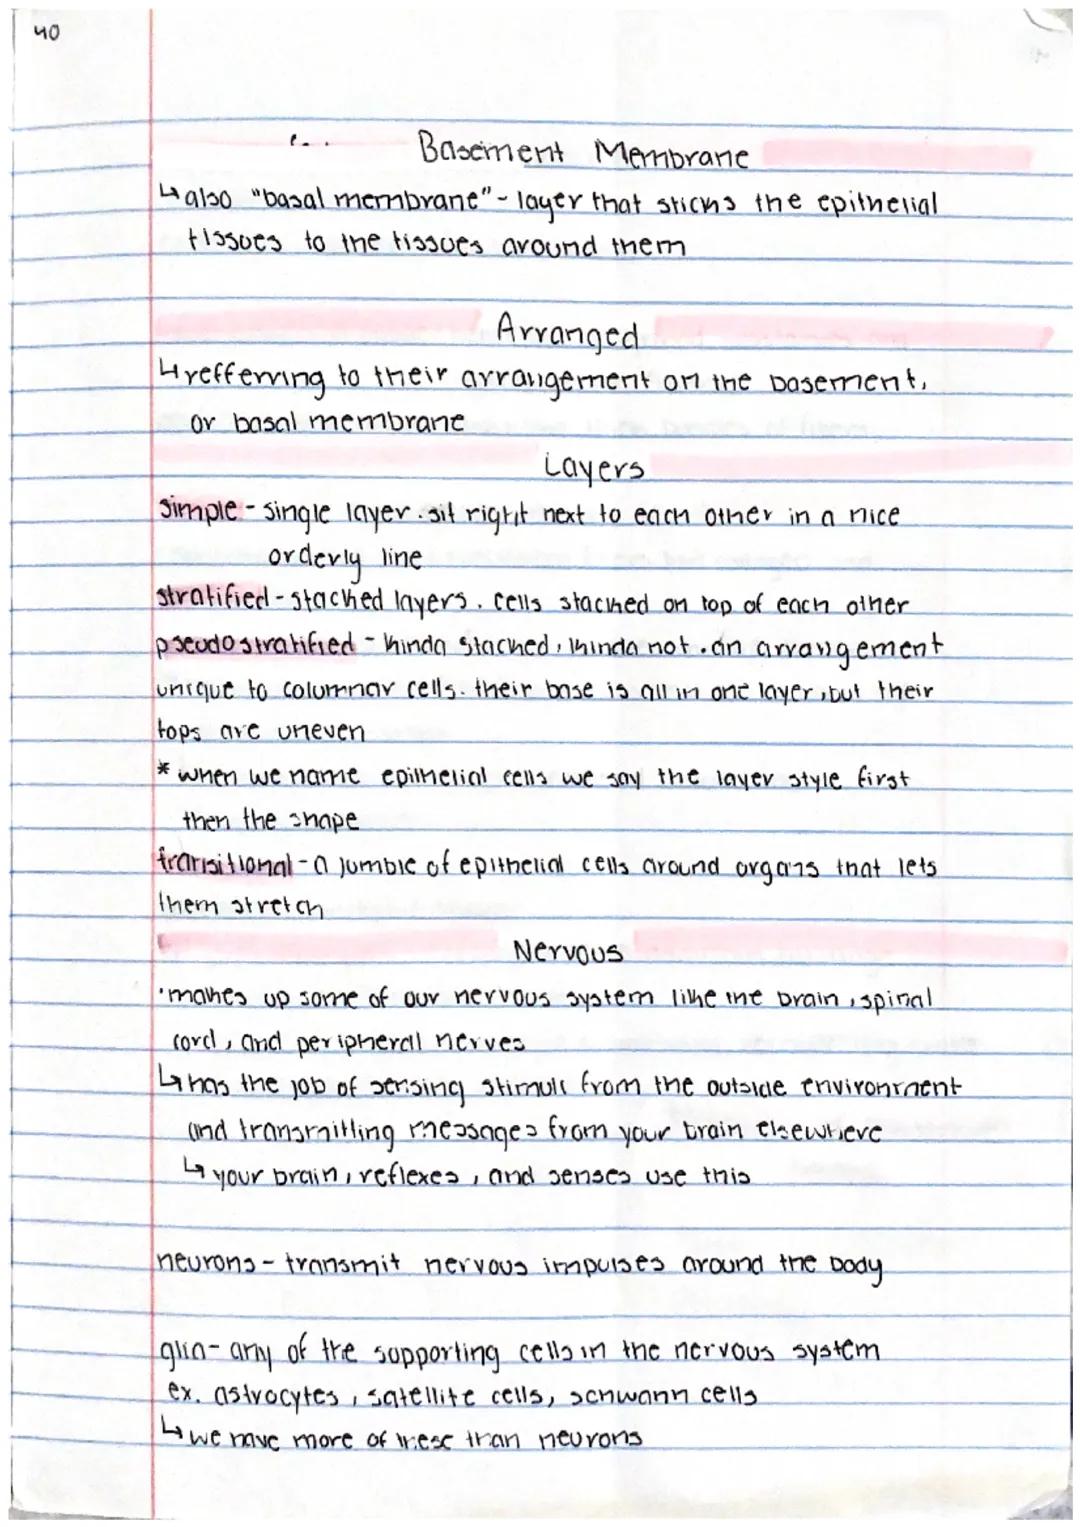 40
Basement Membrane
↳also "basal membrane" - layer that sticks the epithelial
tissues to the tissues around them
Arranged
↳refferring to their arrangement on the basement,
or basal membrane
Layers
simple - single layer. sit right next to each other in a nice
orderly line
stratified - stacked layers. cells stacked on top of each other
pseudostratified - kinda stacked, kinda not. an arrangement
unique to columnar cells. their base is all in one layer, but their
tops are uneven
* when we name epithelial cells we say the layer style first
then the shape
transitional - a jumble of epithelial cells around organs that lets
them stretch
Nervous
•makes up some of our nervous system like the brain, spinal
cord, and peripheral nerves
↳has the job of sensing stimuli from the outside environment
and transmitting messages from your brain elsewhere
↳your brain, reflexes, and senses use this
neurons - transmit nervous impulses around the body
glia - any of the supporting cells in the nervous system
ex. astrocytes, satellite cells, schwann cells
↳we have more of these than neurons